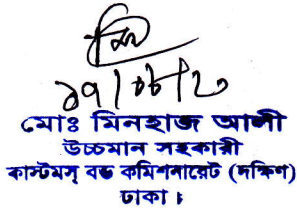 মোঃ মিনহাজ আলী
উচ্চমান সহকারী
কাস্টমস্ বন্ড কমিশনারেট (দক্ষিণ)
ঢাকা।